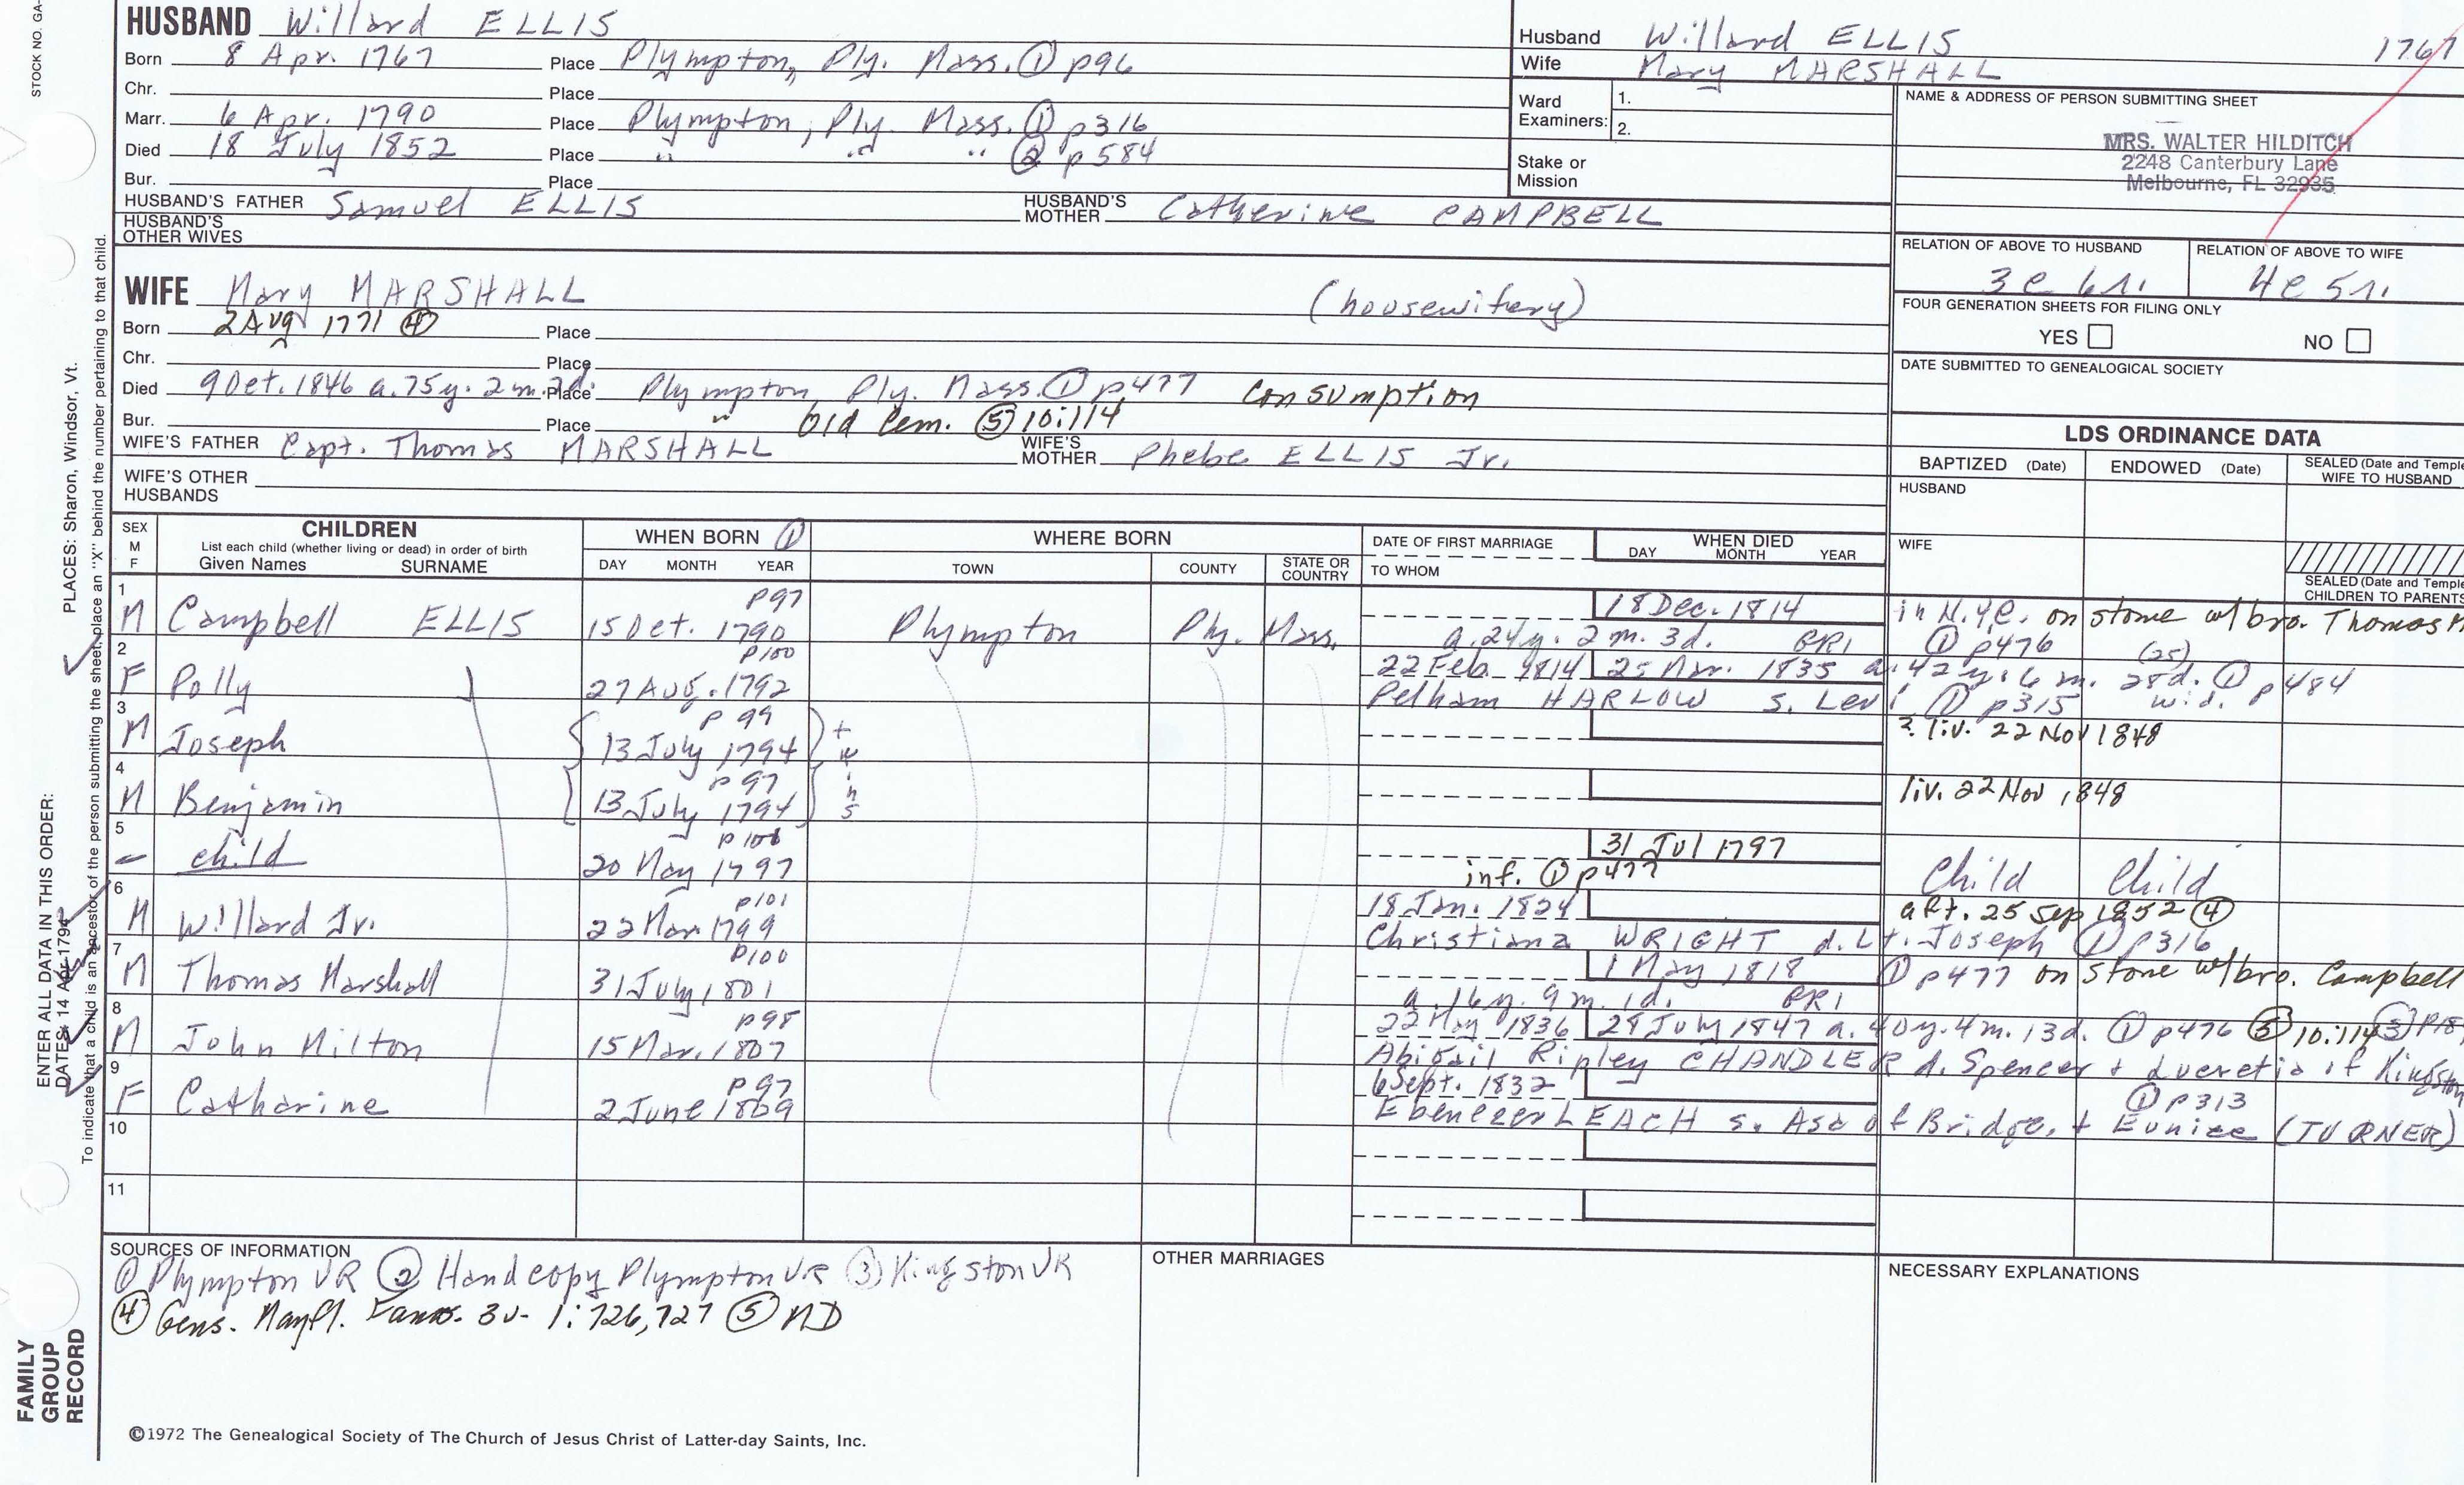 STOCK NO. GA-
HUSBAND Willard ELLIS
Born 8 Apr. 1767 Place Plympton, Ply. Mass. ① p96
Chr. Place
Marr. 6 Apr. 1790 Place Plympton, Ply. Mass. ① p316
Died 18 July 1852 Place " " " ② p584
Bur. Place
HUSBAND'S FATHER Samuel ELLIS HUSBAND'S MOTHER Catherine CAMPBELL
HUSBAND'S OTHER WIVES
Husband Willard ELLIS 1767
Wife Mary MARSHALL
Ward Examiners: 1.
2.
Stake or Mission
NAME & ADDRESS OF PERSON SUBMITTING SHEET
MRS. WALTER HILDITCH
2248 Canterbury Lane
Melbourne, FL 32935
RELATION OF ABOVE TO HUSBAND RELATION OF ABOVE TO WIFE
3c 6r. 4c 5r.
FOUR GENERATION SHEETS FOR FILING ONLY
YES NO
DATE SUBMITTED TO GENEALOGICAL SOCIETY
WIFE Mary MARSHALL (housewifery)
Born 2 Aug 1771 ④ Place
Chr. Place
Died 9 Oct. 1846 a. 75y. 2m. 2d. Place Plympton, Ply. Mass. ① p477 Consumption
Bur. Place " Old Cem. ⑤ 10:114
WIFE'S FATHER Capt. Thomas MARSHALL WIFE'S MOTHER Phebe ELLIS Jr.
WIFE'S OTHER HUSBANDS
LDS ORDINANCE DATA
BAPTIZED (Date) ENDOWED (Date) SEALED (Date and Temple
WIFE TO HUSBAND
HUSBAND
WIFE
SEALED (Date and Temple
CHILDREN TO PARENTS
SEX M F CHILDREN WHEN BORN ① WHERE BORN DATE OF FIRST MARRIAGE WHEN DIED
List each child (whether living or dead) in order of birth
Given Names SURNAME DAY MONTH YEAR TOWN COUNTY STATE OR COUNTRY TO WHOM DAY MONTH YEAR
1 M Campbell ELLIS p97 15 Oct. 1790 Plympton Ply. Mass. 18 Dec. 1814 in N.Y.C. on stone w/bro. Thomas M
a. 24y. 2m. 3d. GR1 ① p476
2 F Polly p100 27 Aug. 1792 22 Feb. 1814 25 Mar. 1835 a. 42y. 6m. 28d. (25) ① p484
Pelham HARLOW s. Levi ① p315 wid.
3 M Joseph p99 13 July 1794 twins ? liv. 22 Nov 1848
4 M Benjamin p97 13 July 1794 liv. 22 Nov 1848
5 – child p100 20 May 1797 31 Jul 1797 Child Child
inf. ① p477
6 M Willard Jr. p101 22 Mar 1799 18 Jan. 1824 aft. 25 Sep 1852 ④
Christiana WRIGHT d. Lt. Joseph ① p316
7 M Thomas Marshall p100 31 July 1801 1 May 1818 ① p477 on stone w/bro. Campbell
a. 16y. 9m. 1d. GR1
8 M John Milton p98 15 Mar. 1807 22 May 1836 28 July 1847 a. 40y. 4m. 13d. ① p476 ⑤ 10:114 ③
Abigail Ripley CHANDLER d. Spencer + Lucretia of Kingston
9 F Catharine p97 2 June 1809 6 Sept. 1832 ① p313
Ebenezer LEACH s. Asa of Bridge. + Eunice (TURNER)
10
11
SOURCES OF INFORMATION
① Plympton VR ② Handcopy Plympton VR ③ Kingston VR
④ Gens. Mayfl. Fams. 3v- 1:726,727 ⑤ MD
OTHER MARRIAGES
NECESSARY EXPLANATIONS
©1972 The Genealogical Society of The Church of Jesus Christ of Latter-day Saints, Inc.
FAMILY GROUP RECORD
ENTER ALL DATA IN THIS ORDER:
DATES: 14 Apr 1794
PLACES: Sharon, Windsor, Vt.
To indicate that a child is an ancestor of the person submitting the sheet, place an "X" behind the number pertaining to that child.